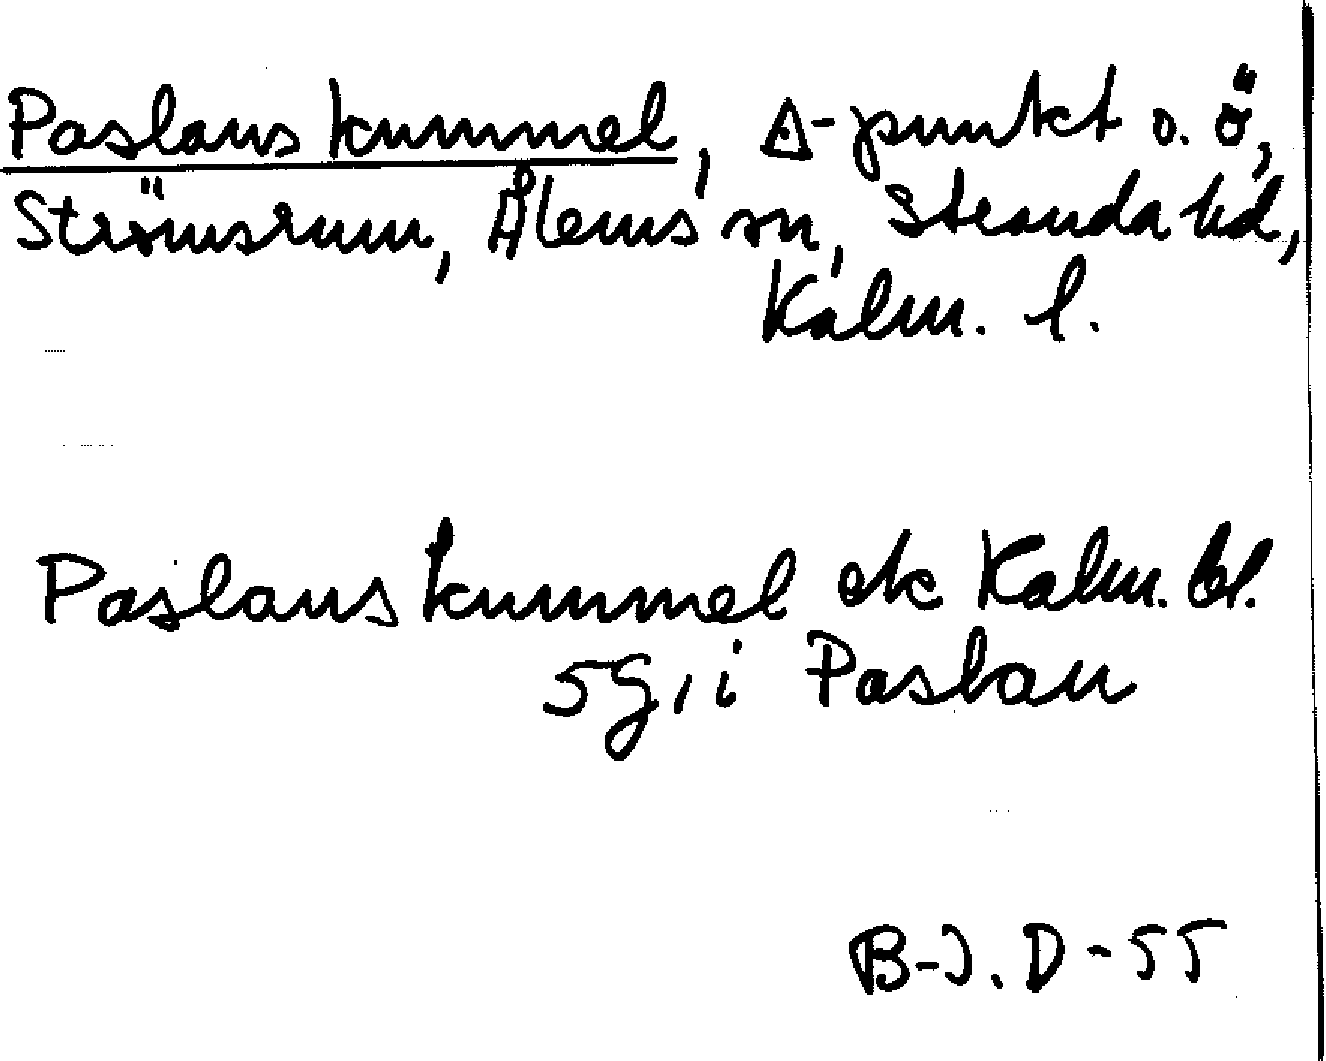 Paslans kummel, Δ-punkt o. ö,
Strömsrum, Ålems sn, Stranda hd,
Kalm. l.
Paslans kummel ek Kalm. bl.
5g, i Paslan
B-J. D-55